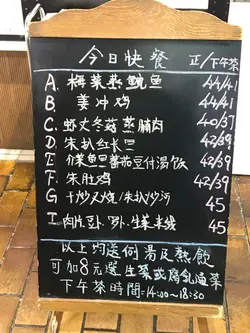 今日快餐 正/下午茶
A. 梅菜蒸鯇魚 44/41
B. 姜冲鸡 44/41
C. 虾丈冬菇蒸腩肉 40/37
D. 朱扒红长二 42/39
E. 介菜鱼旦蕃茄豆付湯饭 42/39
F. 朱肚鸡 42/39
G 干炒叉燒/朱扒炒河 45
I. 肉片豆卜、生菜米线 45
以上均送例湯及熱飲
可加8元選生菜或腐乳通菜
下午茶時間=14:00~18:30